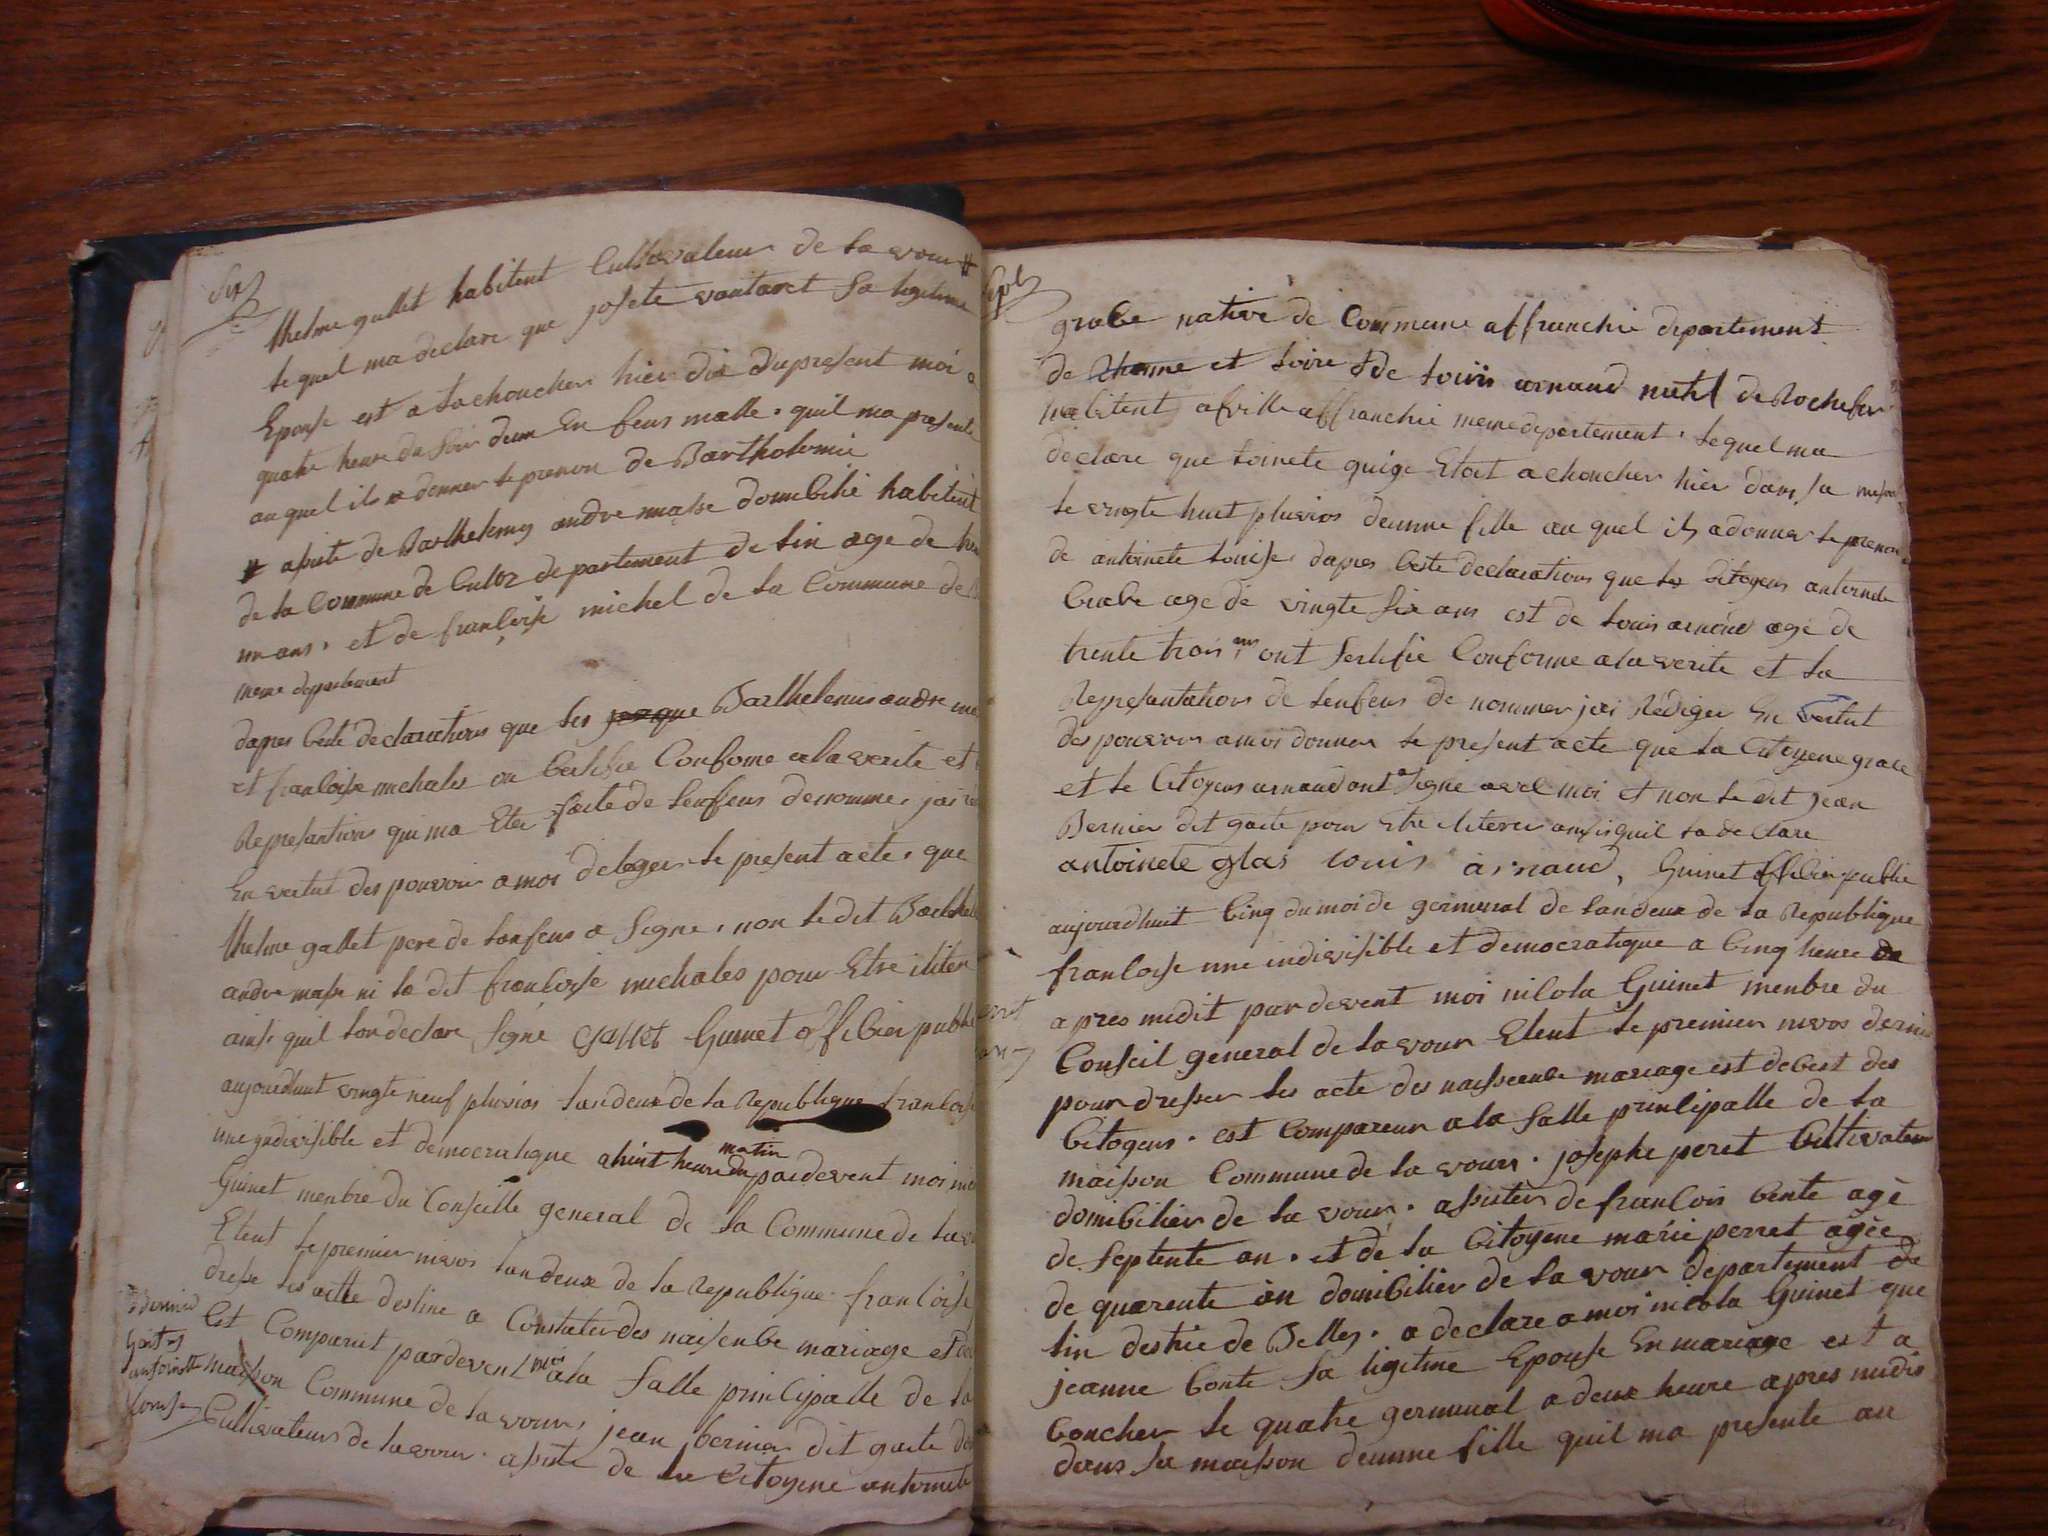 six
thelme gallet habitent Cultivateur de lavour #
lequel ma declare que josete vantaret sa legitime
Epouse est a lachoucher hier dix du present moi a
quatre heure du soir deun En fens malle. quil ma presente
au quel ila donner le prenom de Bartholomie
# asiste de Barthelemy andre masse domicilié habitent
de la Commune de Culoz departement de lin age de
un ans. et de francoise michel de la Commune de
meme departement
dapres ceste declarations que les Barthelemis andre
et francoise michales on Certifie Conforme ala verite et
Represantions qui ma Ete faite de lenffens denomme, jai
En vertut des pouvoir a moi deleger le present acte, que
thelme gallet pere de lenfens a Signe, non le dit
andre masse ni la dit francoise michales pour Etre iliter
ainsi quil lon declare Signé Gallet Guinet officier public
aujourdhuit vingte neuf pluvios landeux de la Republique francoise
une yndivisible et democratique a huit heure du matin pardevent moi
Guinet menbre du Conseille general de la Commune de
Etent le premier nivos landeux de la Republique francoise
drese les actte destine a Constater des naisenbe mariage et
Est Comparut pardevent moi ala Salle principalle de la
maison Commune de lavour, jean bernier dit gaite
Cultivateur de lavour. asiste de la Citoyene antoinete
bernier
gaite
antoinette
louise
sept
grabe native de Commune affranchie departement
de Rhonne et loire & de louis arnaud natif de Rochefor
habitent a ville affranchie meme departement. lequel ma
declare que loinete guige Etoit achoucher hier dans sa
le vingte huit pluvios deunne fille au quel ils a donner le prenom
de antoinete louise dapres ceste declarations que la Citoyens antoinete
grabe age de vingte six ans est de louis arnaud age de
trente trois ans ont Sertifie Conforme ala verite et la
Represantations de lenfens de nommer jai Rédiger En vertut
des pouvoir amoi donner le present acte que la Citoyene grace
et le Citoyens arnaud ont Signe avec moi et non le dit jean
Bernier dit gaite pour Etre iliterer ainsi quil la declare
antoinete glas louis arnaud, Guinet officier public
aujourdhuit Cinq du moi de germinal de landeux de la Republique
francoise une indivisible et democratique a Cinq heure de
apres midit par devent moi nicola Guinet menbre du
Conseil general de lavour Etent le premier nivos dernier
pour dresser les acte des naissence mariage est decest des
Citoyens. est Compareur ala Salle principalle de la
maison Commune de la vour. josephe peret Cultivateur
domicilier de la vour. asister de francois bente agé
de Septente an. et de la Citoyene marie perret agée
de quarente an domicilier de la vour departement de
lin destrie de Belley. a declare a moi nicola Guinet que
jeanne Conte sa ligitime Epouse En mariage est a
Coucher le quatre germinal a deux heure apres midis
dans sa maison deunne fille quil ma presente au